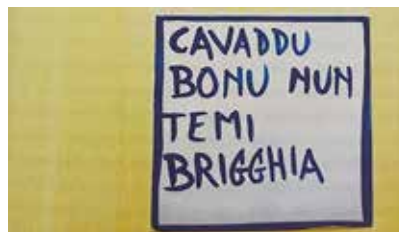 CAVADDU
BONU NUN
TEMI
BRIGGHIA